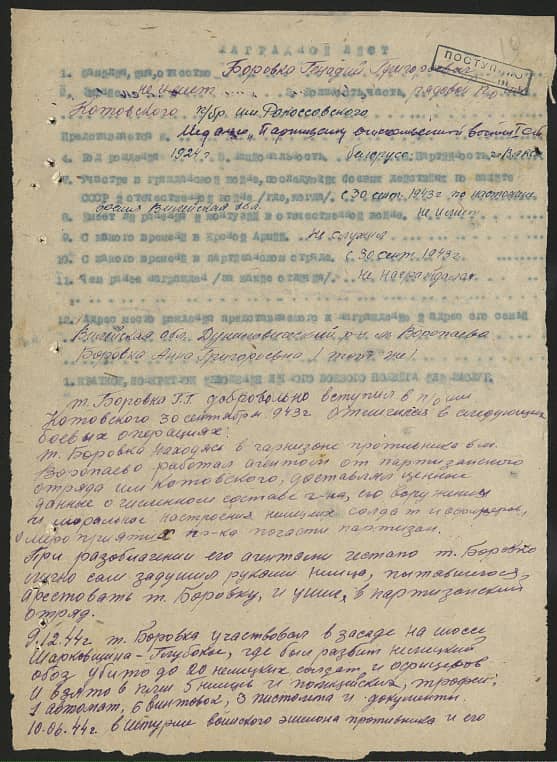 НАГРАДНОЙ ЛИСТ
ПОСТУПИЛ
1. Фамилия, имя, отчество Боровко Григорьевич
2. Звание не имеет 3. часть рядовой п/о
Котовского п/бр. им. Рокоссовского
Представляется к медали "Партизану отечественной войны" I ст.
4. Год рождения 1924 г. 5. национальность белорус 6. Партийность
7. Участие в гражданской войне, последующих боевых действиях по защите
СССР и отечественной войне /где, когда/. с 30 сент. 1943 г. по настоящее
время Вилейская обл.
8. Имеет ли ранения и контузии в отечественной войне. не имеет
9. С какого времени в Красной Армии. не служил
10. С какого времени в партизанском отряде. с 30 сент. 1943 г.
11. Чем ранее награжден /за какие отличия/. не награждался
12. Адрес место рождения представляемого к награждению и адрес его семьи
Вилейская обл. Дуниловичский р-н м. Воропаево
Боровка Анна Григорьевна /там же/
1. КРАТКОЕ, КОНКРЕТНОЕ ИЗЛОЖЕНИЕ ЛИЧНОГО БОЕВОГО ПОДВИГА ИЛИ ЗАСЛУГ.
т. Боровко Г.Г. добровольно вступил в п/о им
Котовского 30 сентября 1943 г отличился в следующих
боевых операциях:
т. Боровко находясь в гарнизоне противника в м.
Воропаево работал агентом от партизанского
отряда им Котовского, доставлял ценные
данные о численном составе г-на, его вооружении
и моральное настроения немецких солдат и офицеров,
мероприятия пр-ка по части партизан.
При разоблачении его агентами гестапо т. Боровко
лично сам задушил руками немца, пытавшегося
арестовать т. Боровку, и ушел в партизанский
отряд.
9.12.44 г т. Боровка участвовал в засаде на шоссе
Шарковщина – Глубокое, где был развит немецкий
обоз убито до 20 немецких солдат и офицеров
и взято в плен 5 немцев и полицейских, трофеи:
1 автомат, 6 винтовок, 3 пистолета и документы.
10.06.44 г в штурме воинского эшелона противника и его